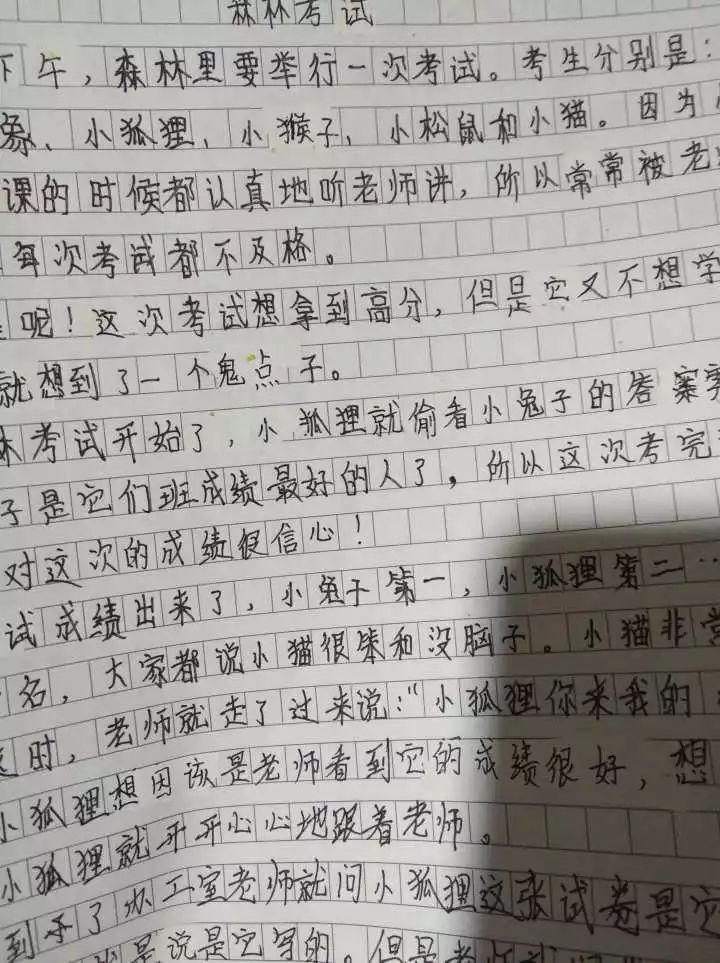 森林考试
下午，森林里要举行一次考试。考生分别是：
象、小狐狸、小猴子、小松鼠和小猫。因为
课的时候都认真地听老师讲，所以常常被老
每次考试都不及格。
呢！这次考试想拿到高分，但是它又不想学
就想到了一个鬼点子。
林考试开始了，小狐狸就偷看小兔子的答案
子是它们班成绩最好的人了，所以这次考完
对这次的成绩很信心！
试成绩出来了，小兔子第一，小狐狸第二…
名，大家都说小猫很笨和没脑子。小猫非常
时，老师就走了过来说：“小狐狸你来我的
小狐狸想因该是老师看到它的成绩很好，想
小狐狸就开开心心地跟着老师。
到了办工室老师就问小狐狸这张试卷是它
是说是它写的。但是老师就